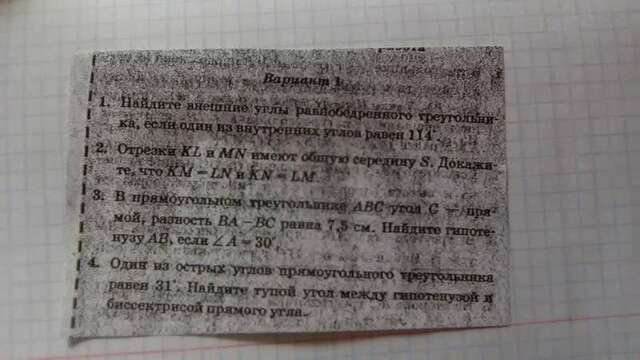 работа
Вариант 1
1. Найдите внешние углы равнобедренного треугольни-
ка, если один из внутренних углов равен 114°.
2. Отрезки KL и MN имеют общую середину S. Докажи-
те, что KM = LN и KN = LM.
3. В прямоугольном треугольнике ABC угол C — пря-
мой, разность BA – BC равна 7,5 см. Найдите гипоте-
нузу AB, если ∠A = 30°.
4. Один из острых углов прямоугольного треугольника
равен 31°. Найдите тупой угол между гипотенузой и
биссектрисой прямого угла.